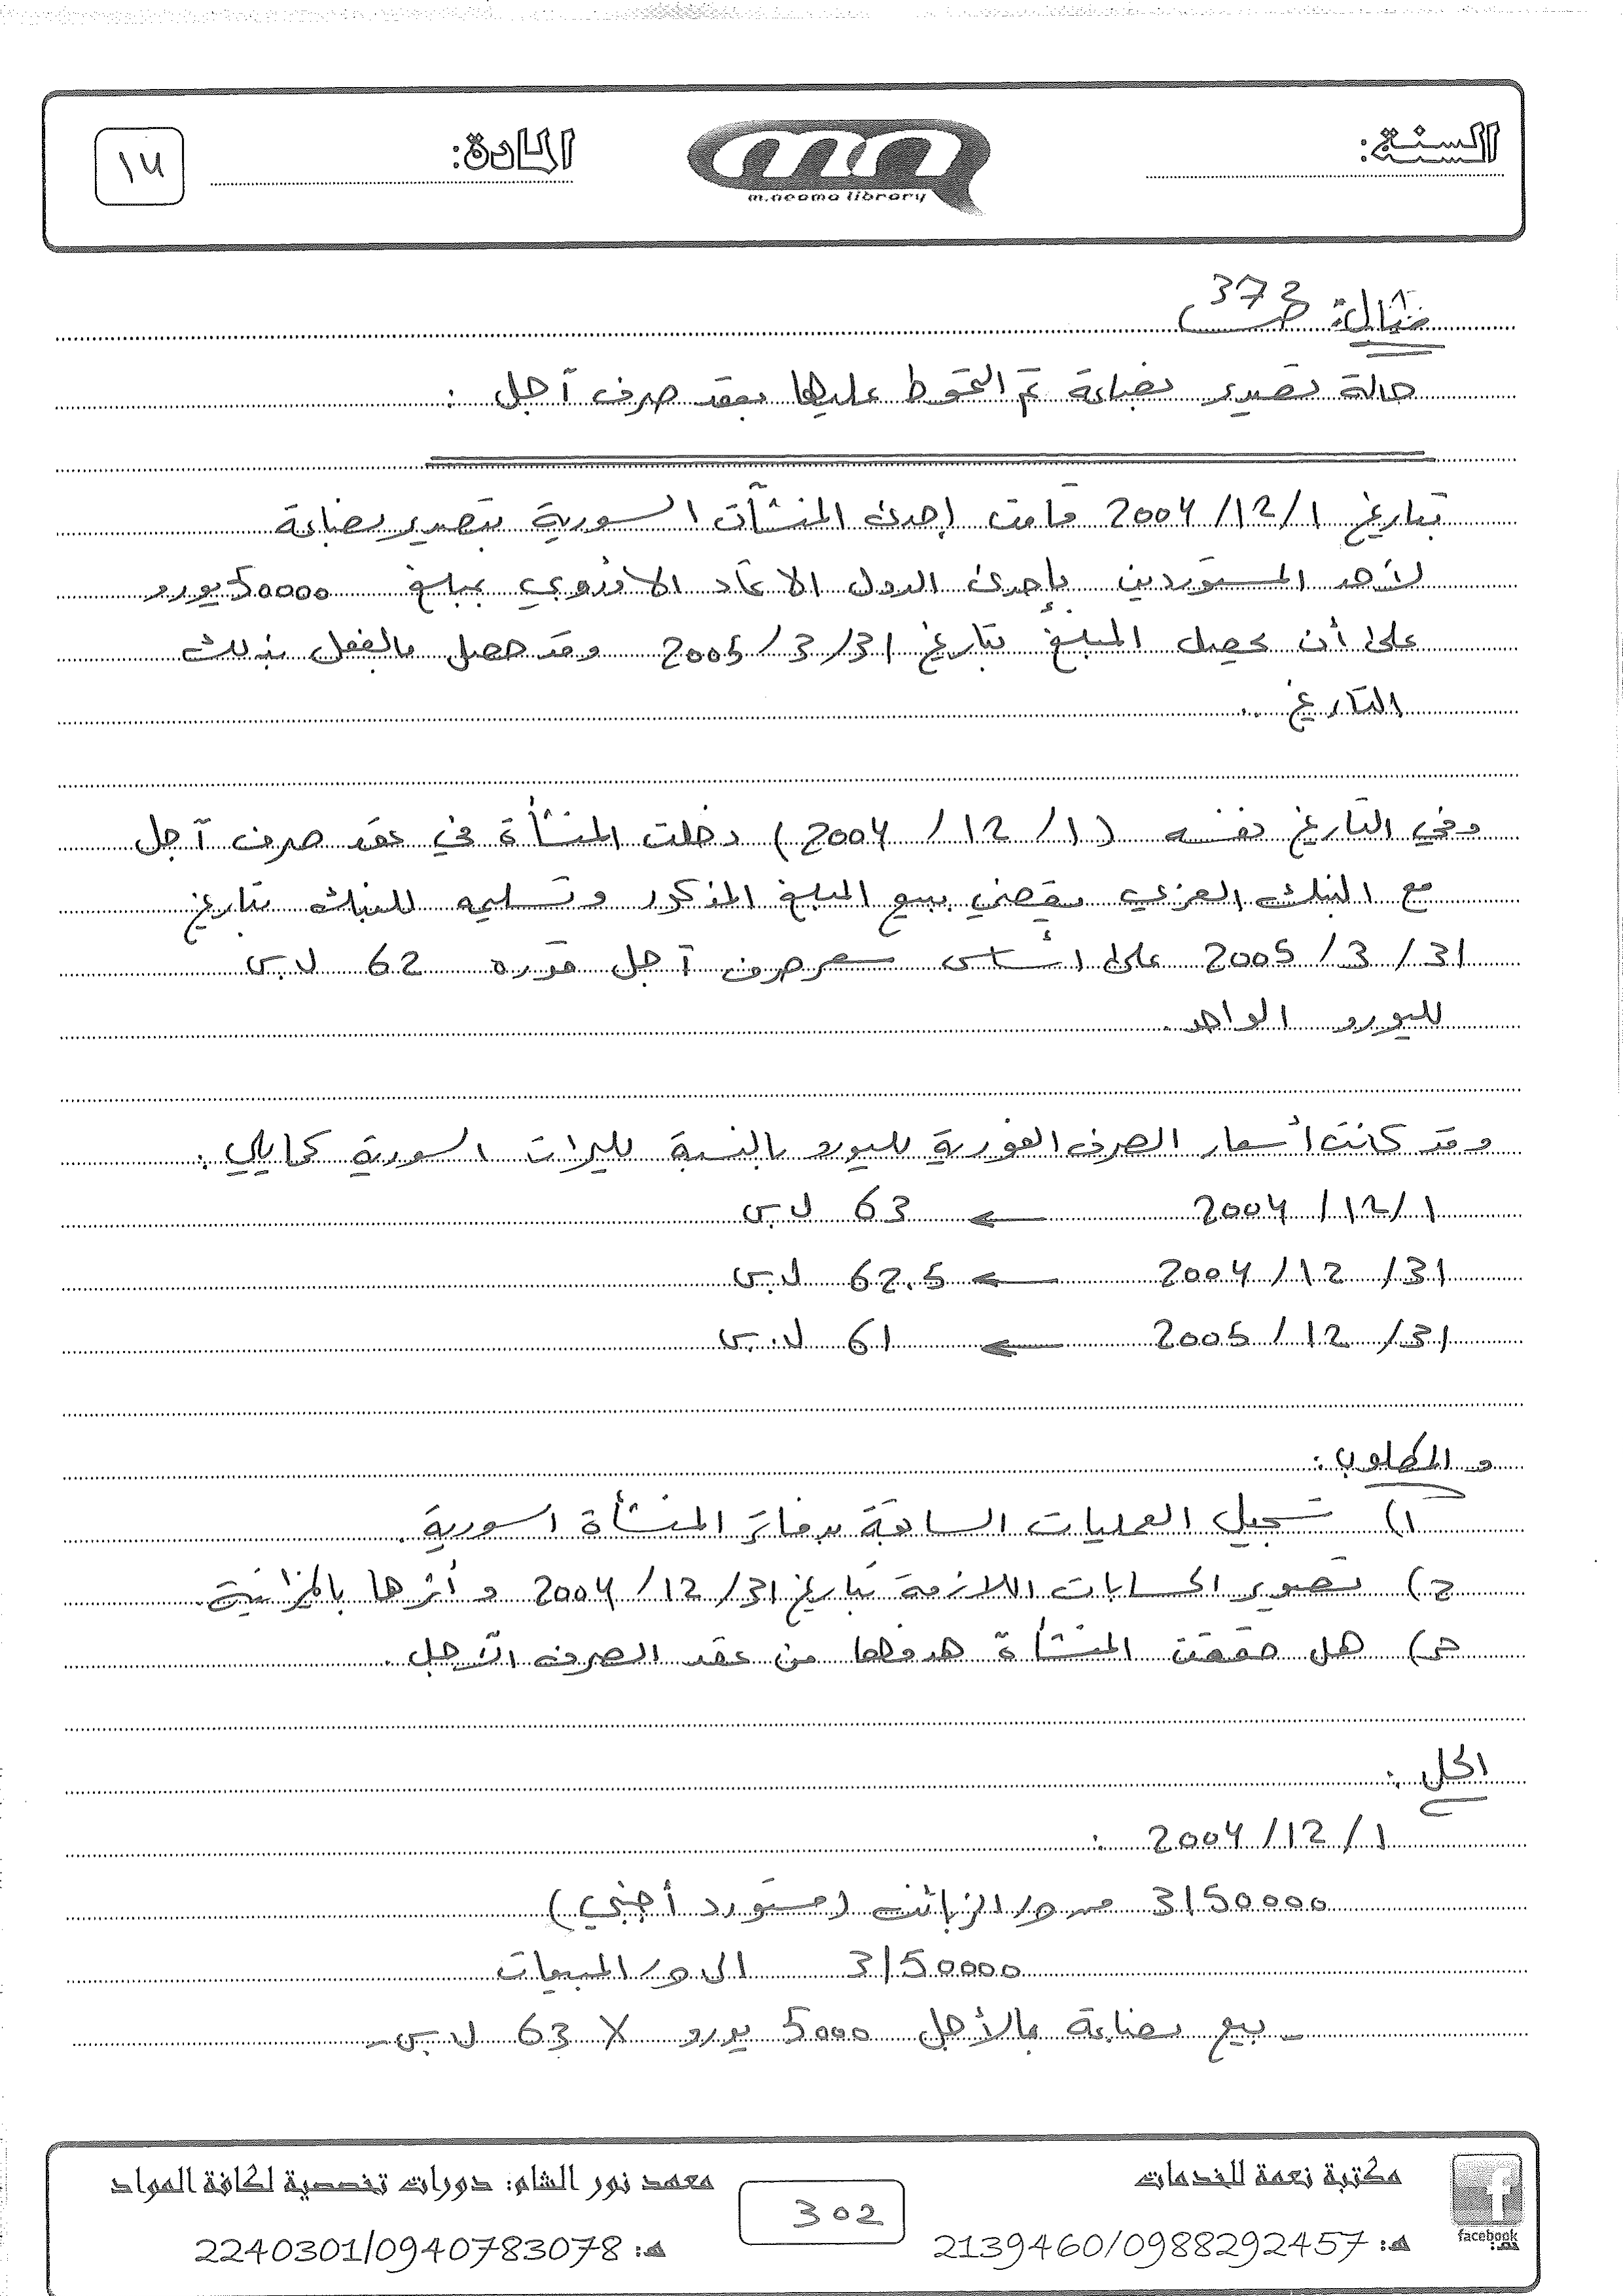 السنة:
m.neoma library
المادة:
١٧
مثال: ص 373
حالة تصدير بضاعة تم التحوط عليها بعقد صرف آجل :
بتاريخ 1/12/2004 قامت إحدى المنشآت السورية بتصدير بضاعة
لأحد المستوردين بإحدى الدول الاتحاد الاوروبي بمبلغ 50000 يورو
على أن يحصل المبلغ بتاريخ 31/3/2005 وقد حصل بالفعل بذلك
التاريخ ..
وفي التاريخ نفسه (1/12/2004) دخلت المنشأة في عقد صرف آجل
مع البنك المركزي يقضي ببيع المبلغ المذكور وتسليمه للبنك بتاريخ
31/3/2005 على أساس سعر صرف آجل قدره 62 ل.س
لليورو الواحد.
وقد كانت أسعار الصرف الفورية لليورو بالنسبة لليرات السورية كمايلي :
1/12/2004 ← 63 ل.س
31/12/2004 ← 62.5 ل.س
31/12/2005 ← 61 ل.س
والمطلوب :
1) تسجيل العمليات السابقة بدفاتر المنشأة السورية.
2) تصوير الحسابات اللازمة بتاريخ 31/12/2004 وأثرها بالميزانية.
3) هل حققت المنشأة هدفها من عقد الصرف الآجل.
الحل :
1/12/2004 :
3150000 من حـ/ الزبائن (مستورد أجنبي)
3150000 إلى حـ/ المبيعات
- بيع بضاعة بالأجل 5000 يورو X 63 ل.س -
مكتبة نعمة للخدمات
هـ: 2139460/0988292457
302
معهد نور الشام: دورات تخصصية لكافة المواد
هـ: 2240301/0940783078
facebook